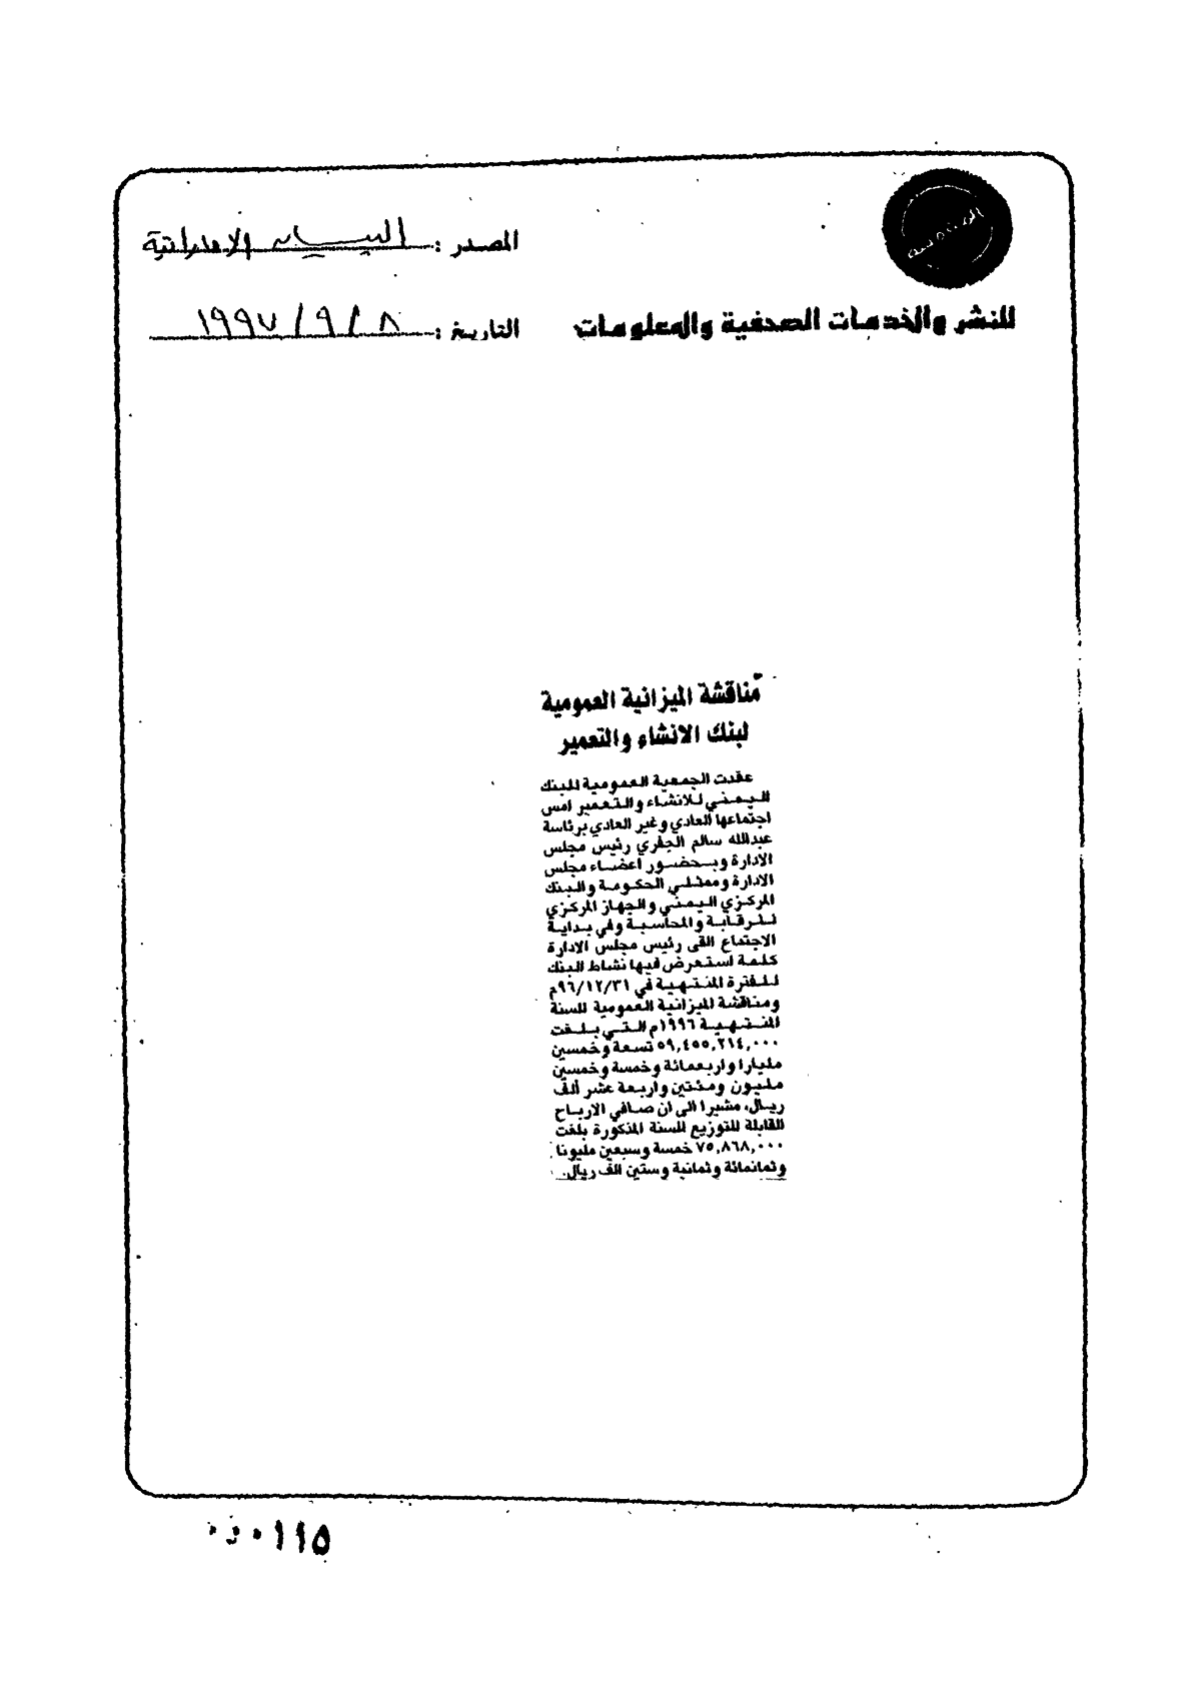 المصدر : البيان الاماراتية
للنشر والخدمات الصحفية والمعلومات
التاريخ : ٨ / ٩ / ١٩٩٧
مناقشة الميزانية العمومية
لبنك الانشاء والتعمير
عقدت الجمعية العمومية للبنك
اليمني للانشاء والتعمير امس
اجتماعها العادي وغير العادي برئاسة
عبدالله سالم الجفري رئيس مجلس
الادارة وبحضور اعضاء مجلس
الادارة وممثلي الحكومة والبنك
المركزي اليمني والجهاز المركزي
للرقابة والمحاسبة وفي بداية
الاجتماع القى رئيس مجلس الادارة
كلمة استعرض فيها نشاط البنك
للفترة المنتهية في ٩٦/١٢/٣١م
ومناقشة الميزانية العمومية للسنة
المنتهية ١٩٩٦م التي بلغت
٥٩,٤٥٥,٢١٤,٠٠٠ تسعة وخمسين
مليارا واربعمائة وخمسة وخمسين
مليون ومئتين واربعة عشر ألف
ريال، مشيرا الى ان صافي الارباح
القابلة للتوزيع للسنة المذكورة بلغت
٧٥,٨٦٨,٠٠٠ خمسة وسبعين مليونا
وثمانمائة وثمانية وستين الف ريال.